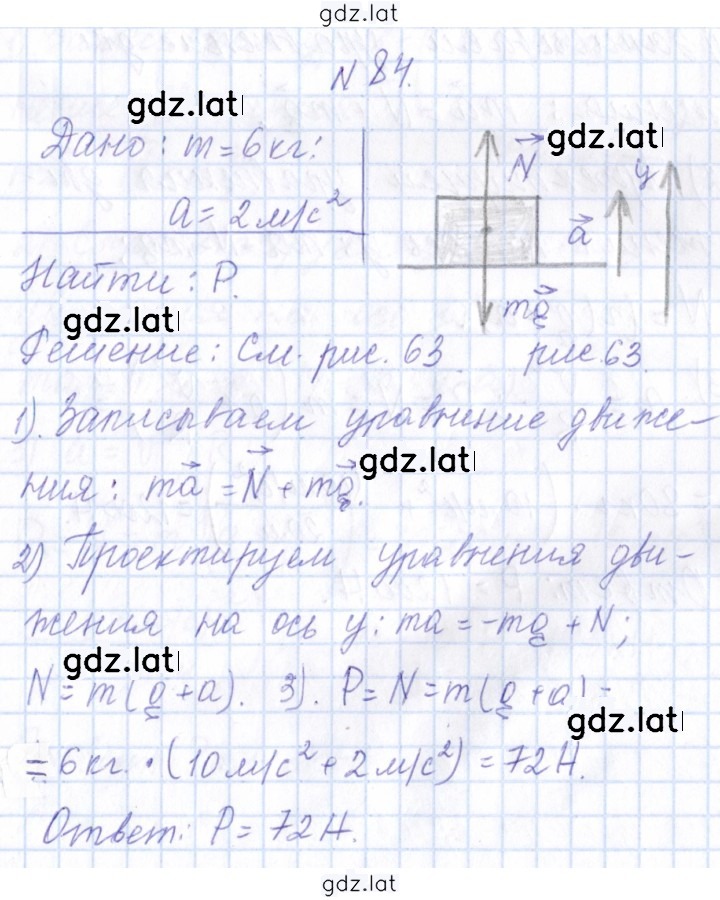 gdz.lat
N 84.
gdz.lat
Дано: m = 6 кг;
gdz.lat
N
y
a = 2 м/с²
a
Найти: P.
mg
gdz.lat
Решение: См. рис. 63.
рис. 63.
1). Записываем уравнение движе-
gdz.lat
ния: ma = N + mg.
2) Проектируем уравнения дви-
жения на ось y: ma = -mg + N;
gdz.lat
N = m(g + a). 3). P = N = m(g + a) =
gdz.lat
= 6 кг. · (10 м/с² + 2 м/с²) = 72 Н.
Ответ: P = 72 Н.
gdz.lat